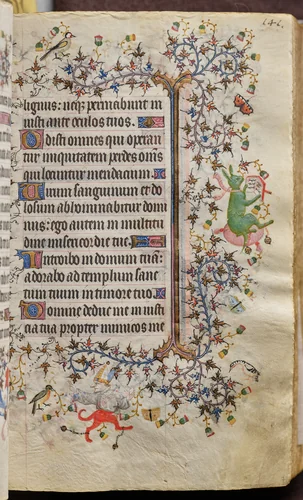 lignus: neq; permanebunt in
iusti ante oculos tuos.
Odisti omnes qui operan
tur iniquitatem perdes oms
qui locuntur mendacium.
Uirum sanguinum et do
losum abhominabitur domi
nus: ego autem in multitu
dine misericordie tue.
Introibo in domum tua:
adorabo ad templum sanc
tum tuum in timore tuo.
Domine deduc me in iusti
cia tua propter inimicos me